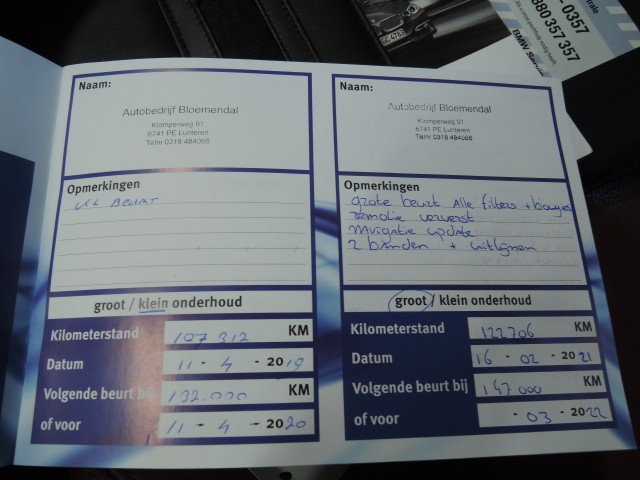 Naam:
Autobedrijf Bloemendal
Klomperweg 91
6741 PE Lunteren
Telnr 0318 484068
Opmerkingen
KL BEURT
groot / klein onderhoud
Kilometerstand 107312 KM
Datum 11 - 4 - 2019
Volgende beurt bij 132.000 KM
of voor 11 - 4 - 2020
Naam:
Autobedrijf Bloemendal
Klomperweg 91
6741 PE Lunteren
Telnr 0318 484068
Opmerkingen
grote beurt Alle filters + bougies
remolie ververst
Navigatie update
2 banden + uitlijnen
groot / klein onderhoud
Kilometerstand 122706 KM
Datum 16 - 02 - 2021
Volgende beurt bij 147000 KM
of voor - 03 - 2022
-0357
880 357 357
BMW Servi